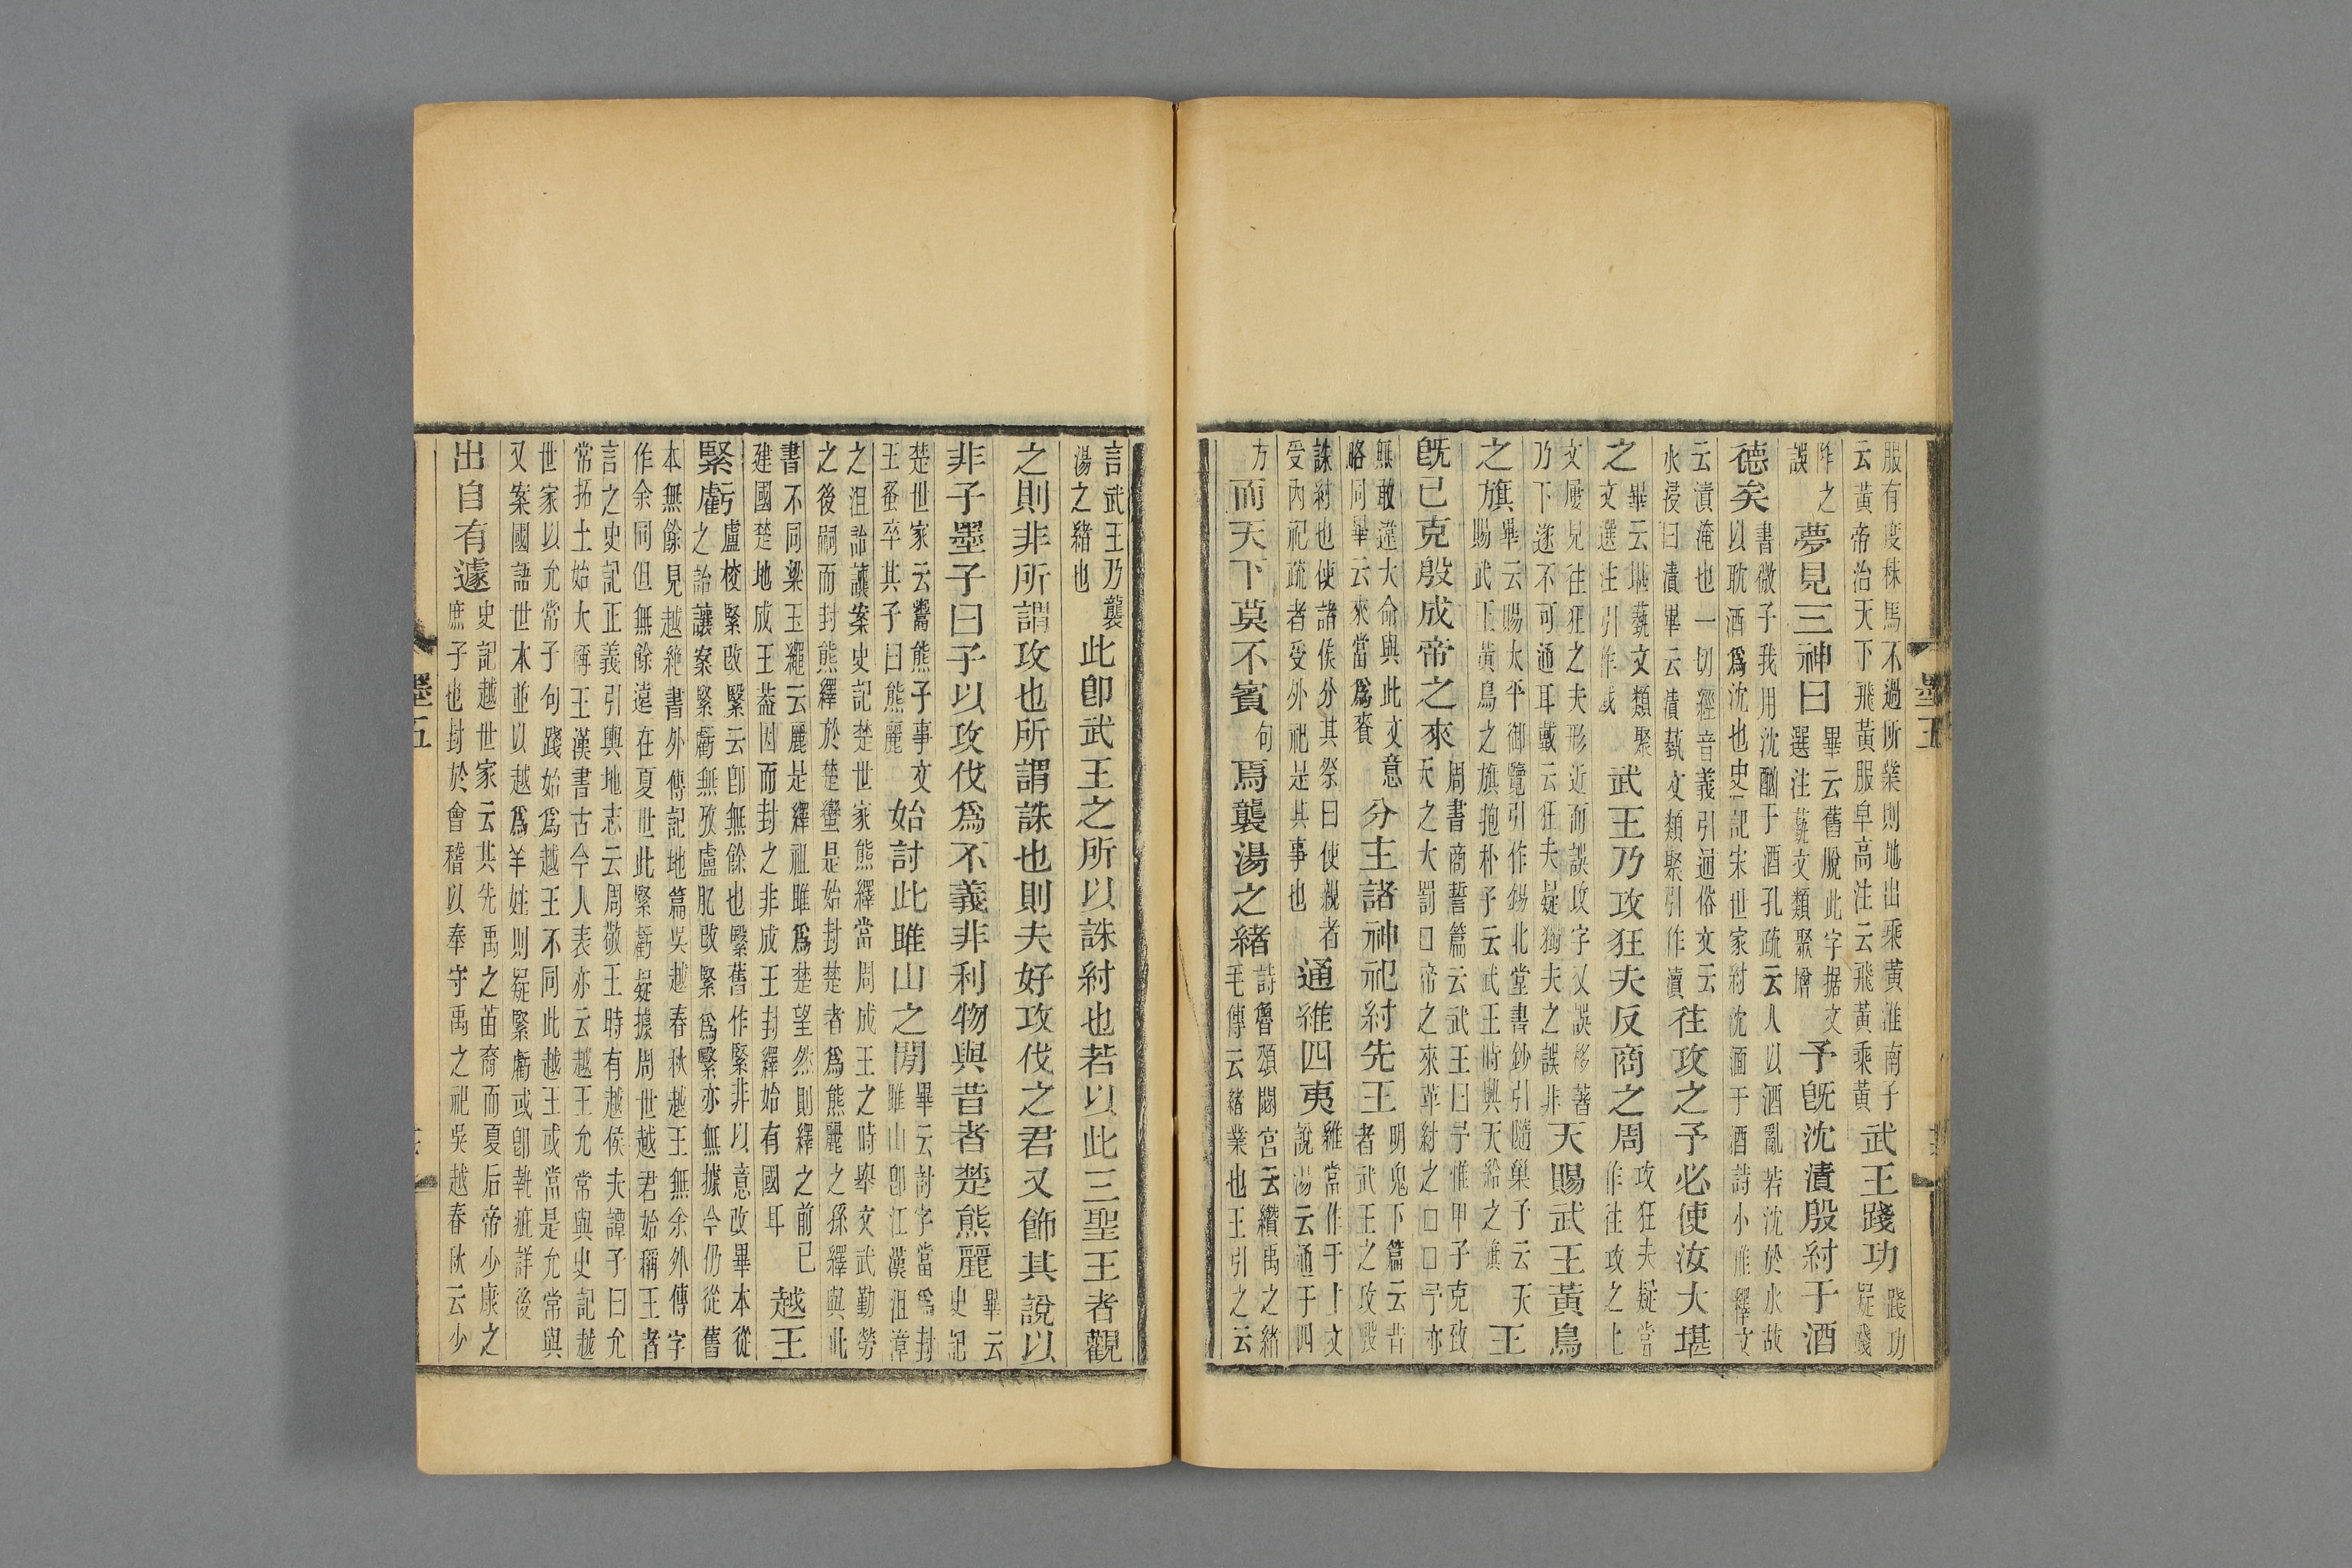 服有度秣馬不過所業則地出乘黃淮南子云黃帝治天下飛黃服皁高注云飛黃乘黃武王踐功踐功疑踐
阼之誤夢見三神曰畢云舊脫此字据文選注藝文類聚增予旣沈漬殷紂于酒
德矣書微子我用沈酗于酒孔疏云人以酒亂若沈於水故以耽酒爲沈也史記宋世家紂沈湎于酒詩小雅釋文
云漬淹也一切經音義引通俗文云水浸曰漬畢云漬藝文類聚引作瀆往攻之予必使汝大堪
之畢云堪藝文類聚文選注引作戡武王乃攻狂夫反商之周攻狂夫疑當作往攻之上
文屢見往狂之夫形近而誤攻字又誤移著乃下遂不可通耳戴云狂夫疑獨夫之誤非天賜武王黃鳥
之旗畢云賜太平御覽引作錫北堂書鈔引隨巢子云天賜武王黃鳥之旗抱朴子云武王時興天給之旗王
旣已克殷成帝之來周書商誓篇云武王曰予惟甲子克致天之大罰□帝之來革紂之□□予亦
無敢違大命與此文意略同畢云來當爲賚分主諸神祀紂先王明鬼下篇云昔者武王之攻殷
誅紂也使諸侯分其祭曰使親者受內祀疏者受外祀是其事也通維四夷維當作于上文說湯云通于四
方而天下莫不賓句焉襲湯之緒詩魯頌閟宮云纘禹之緒毛傳云緒業也王引之云
言武王乃襲湯之緒也此卽武王之所以誅紂也若以此三聖王者觀
之則非所謂攻也所謂誅也則夫好攻伐之君又飾其說以
非子墨子曰子以攻伐爲不義非利物與昔者楚熊麗畢云史記
楚世家云鬻熊子事文王蚤卒其子曰熊麗始討此雎山之閒畢云討字當爲封雎山卽江漢沮漳
之沮詒讓案史記楚世家熊繹當周成王之時舉文武勤勞之後嗣而封熊繹於楚蠻是始封楚者爲熊麗之孫繹與此
書不同梁玉繩云麗是繹祖雎爲楚望然則繹之前已建國楚地成王蓋因而封之非成王封繹始有國耳越王
緊虧盧校緊改繄云卽無餘也繄舊作緊非以意改畢本從之詒讓案緊虧無攷盧肊改緊爲繄亦無據今仍從舊
本無餘見越絶書外傳記地篇吳越春秋越王無余外傳字作余同但無餘遠在夏世此緊虧疑據周世越君始稱王者
言之史記正義引輿地志云周敬王時有越侯夫譚子曰允常拓土始大稱王漢書古今人表亦云越王允常與史記越
世家以允常子句踐始爲越王不同此越王或當是允常與又案國語世本並以越爲羊姓則疑緊虧或卽執疵詳後
出自有遽史記越世家云其先禹之苗裔而夏后帝少康之庶子也封於會稽以奉守禹之祀吳越春秋云少
墨五